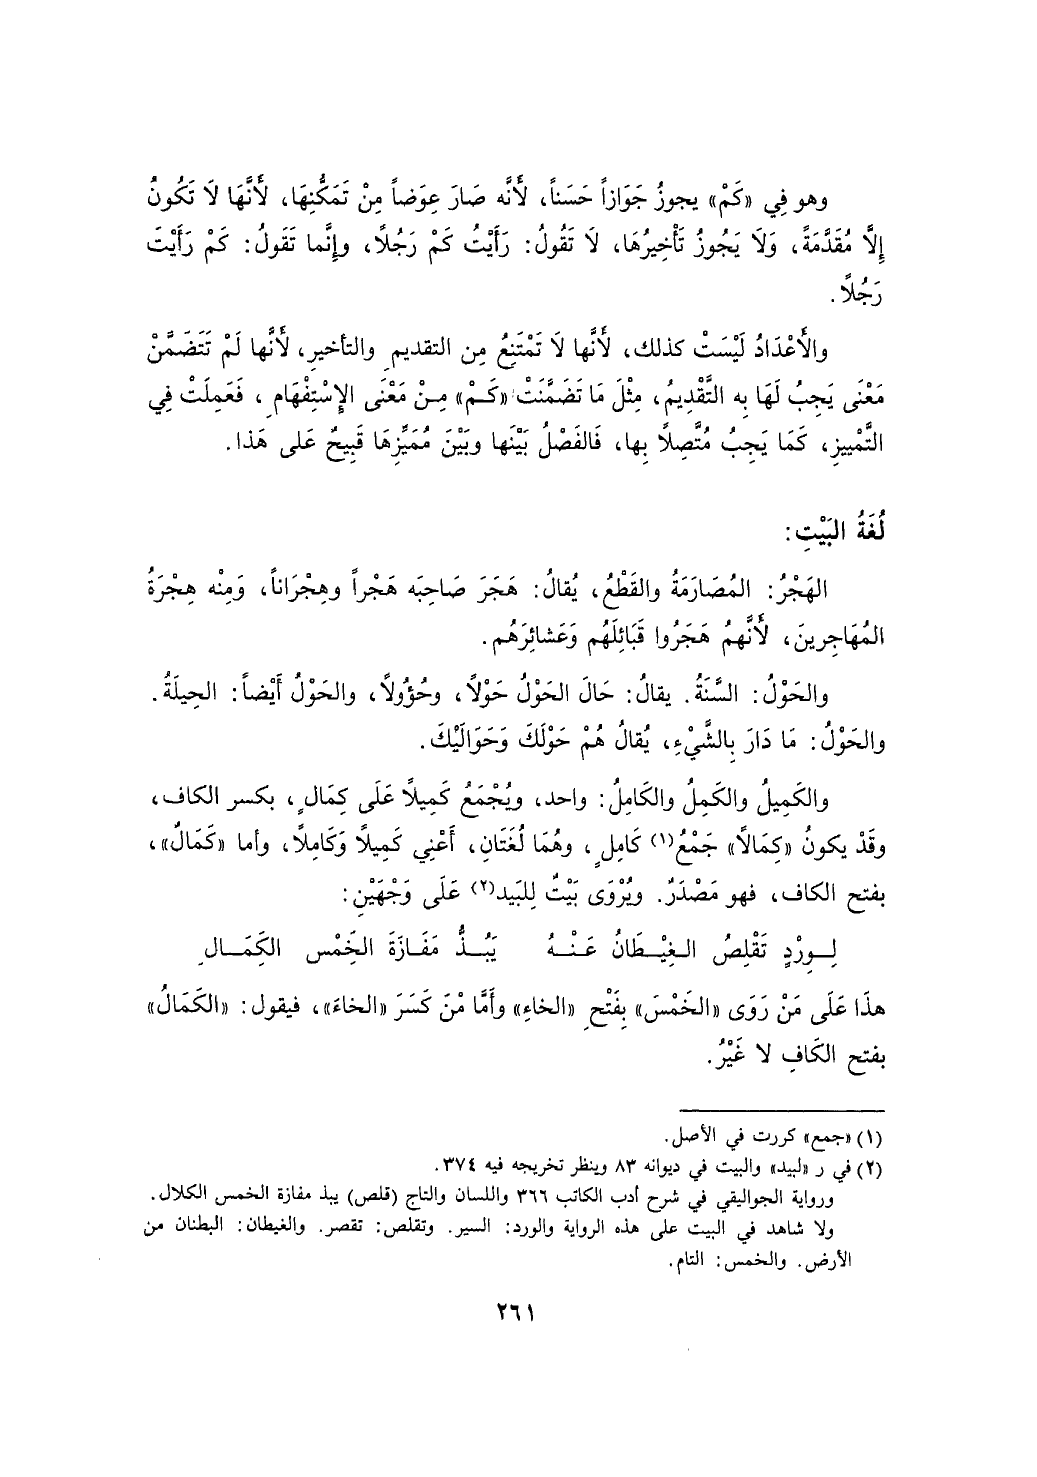 وهو فِي «كَمْ» يجوزُ جَوَازاً حَسَناً، لأَنَّه صَارَ عِوَضاً مِنْ تَمَكُّنِهَا، لأَنَّهَا لَا تَكُونُ
إِلاَّ مُقَدَّمَةً، وَلَا يَجُوزُ تَأْخِيرُهَا، لَا تَقُولُ: رَأَيْتُ كَمْ رَجُلًا، وإِنَّما تَقَولُ: كَمْ رَأَيْتَ
رَجُلاً.
والأَعْدَادُ لَيْسَتْ كذلك، لأَنَّها لَا تَمْتَنِعُ مِن التقديمِ والتأخيرِ، لأَنَّها لَمْ تَتَضَمَّنْ
مَعْنَى يَجِبُ لَهَا بِه التَّقْدِيمُ، مِثْلَ مَا تَضَمَّنَتْ «كَمْ» مِنْ مَعْنَى الإِسْتِفْهَامِ، فَعَمِلَتْ فِي
التَّمْيِيزِ، كَمَا يَجِبُ مُتَّصِلًا بِها، فَالفَصْلُ بَيْنَها وبَيْنَ مُمَيِّزِهَا قَبِيحٌ عَلى هَذا.
لُغَةُ البَيْتِ:
الهَجْرُ: المُصَارَمَةُ والقَطْعُ، يُقالُ: هَجَرَ صَاحِبَه هَجْراً وهِجْرَاناً، وَمِنْه هِجْرَةُ
المُهَاجِرينَ، لأَنَّهمُ هَجَرُوا قَبَائِلَهُم وَعَشائِرَهُم.
والحَوْلُ: السَّنَةُ. يقالُ: حَالَ الحَوْلُ حَوْلًا، وحُؤُولًا، والحَوْلُ أَيْضاً: الحِيلَةُ.
والحَوْلُ: مَا دَارَ بِالشَّيْءِ، يُقالُ هُمْ حَوْلَكَ وَحَوَالَيْكَ.
والكَمِيلُ والكَمِلُ والكَامِلُ: واحد، ويُجْمَعُ كَمِيلًا عَلَى كِمَالٍ، بكسر الكاف،
وقَدْ يكونُ «كِمَالًا» جَمْعُ(١) كَامِلٍ، وهُمَا لُغَتَانِ، أَعْنِي كَمِيلًا وَكَامِلًا، وأما «كَمَالٌ»،
بفتح الكاف، فهو مَصْدَرٌ. ويُرْوَى بَيْتٌ لِلبَيد(٢) عَلَى وَجْهَيْنِ:
لِورْدٍ تَقْلِصُ الغِيْطَانُ عَنْهُ يَبُذُّ مَفَازَةَ الخَِمْسِ الكَِمَالِ
هذَا عَلَى مَنْ رَوَى «الخَمْسَ» بِفَتْحِ «الخاءِ» وأَمَّا مْنَ كَسَرَ «الخاءَ»، فيقول: «الكَمَالُ»
بفتح الكَافِ لا غَيْرُ.
(١) «جمع» كررت في الأصل.
(٢) في ر «لبيد» والبيت في ديوانه ٨٣ وينظر تخريجه فيه ٣٧٤.
ورواية الجواليقي في شرح أدب الكاتب ٣٦٦ واللسان والتاج (قلص) يبذ مفازة الخمس الكلال.
ولا شاهد في البيت على هذه الرواية والورد: السير. وتقلص: تقصر. والغيطان: البطنان من
الأرض. والخمس: التام.
٢٦١